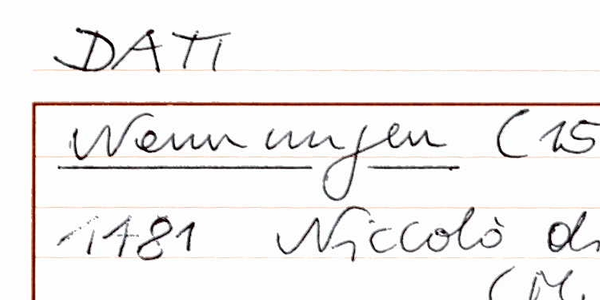 DATI
Nennungen (15
1481 Niccolò di
(M.